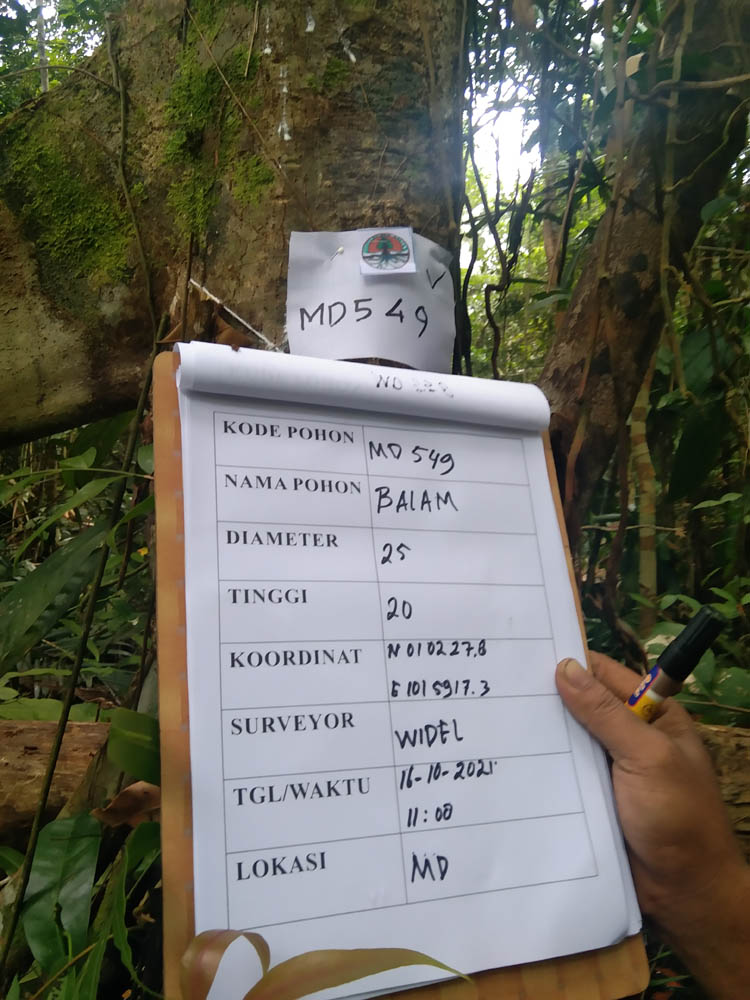 MD549
KODE POHON MD 549
NAMA POHON BALAM
DIAMETER 25
TINGGI 20
KOORDINAT N 010227.8
E 1015917.3
SURVEYOR WIDEL
TGL/WAKTU 16-10-2021
11:08
LOKASI MD